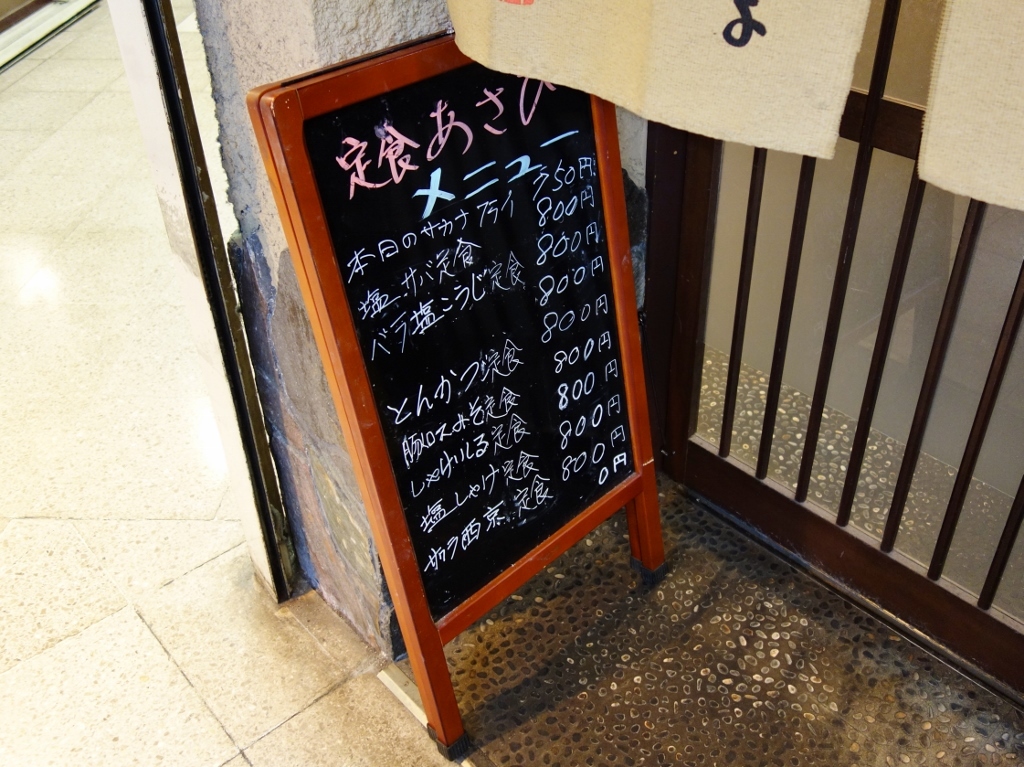 よ
定食あさひ
メニュー
本日のサカナフライ 750円
塩サバ定食 800円
バラ塩こうじ定食 800円
800円
とんかつ定食 800円
豚ロスみそ定食 800円
しゃけいしる定食 800円
塩しゃけ定食 800円
サワラ西京定食 800円
0円